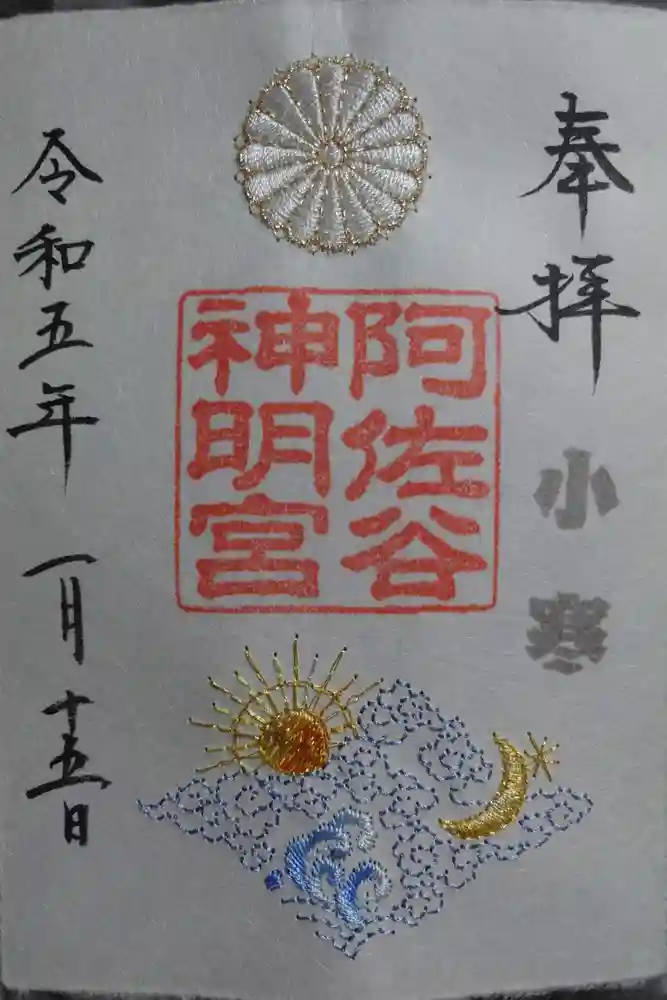 奉拝
小寒
阿佐谷
神明宮
令和五年 一月十五日